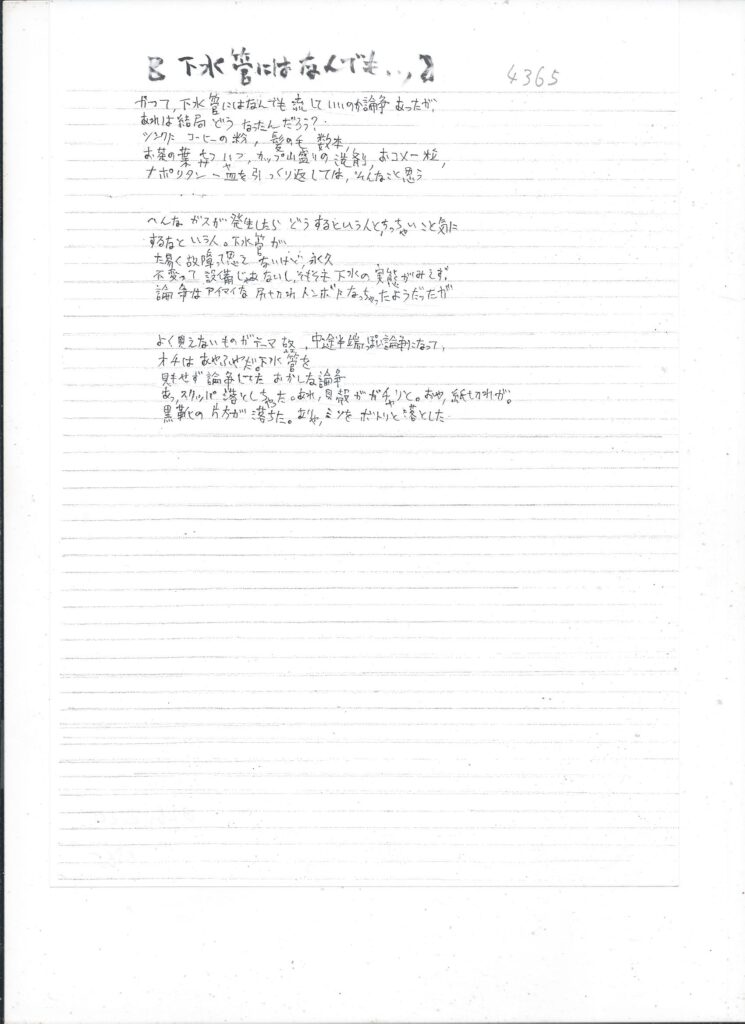 【下水管にはなんでも...】 4365
かつて,下水管にはなんでも流していいのか論争あったが,
あれは結局どうなったんだろう?
シンクに コーヒーの粉,髪の毛 数本,
お茶の葉 ,カップ山盛りの洗剤,おコメ一粒,
ナポリタン一皿を引っくり返しては,そんなこと思う
へんな ガスが発生したらどうするという人と,ちっちゃいこと気に
するなという人。下水管が
た易く故障って思てないけど,永久
不変って設備じゃないし,そもそも下水の実態がみえず,
論争はアイマイな尻切れトンボになっちゃったようだったが
よく見えないものがテーマ故,中途半端っぽい論争になって,
オチはあやふやだ。下水管を
見もせず論争してた おかしな論争
あっ,スリッパ落としちゃった。あれ,貝殻がガチャリと。おや,紙切れが。
黒靴の片方が落ちた。ありゃ,ミソをボトリと落とした